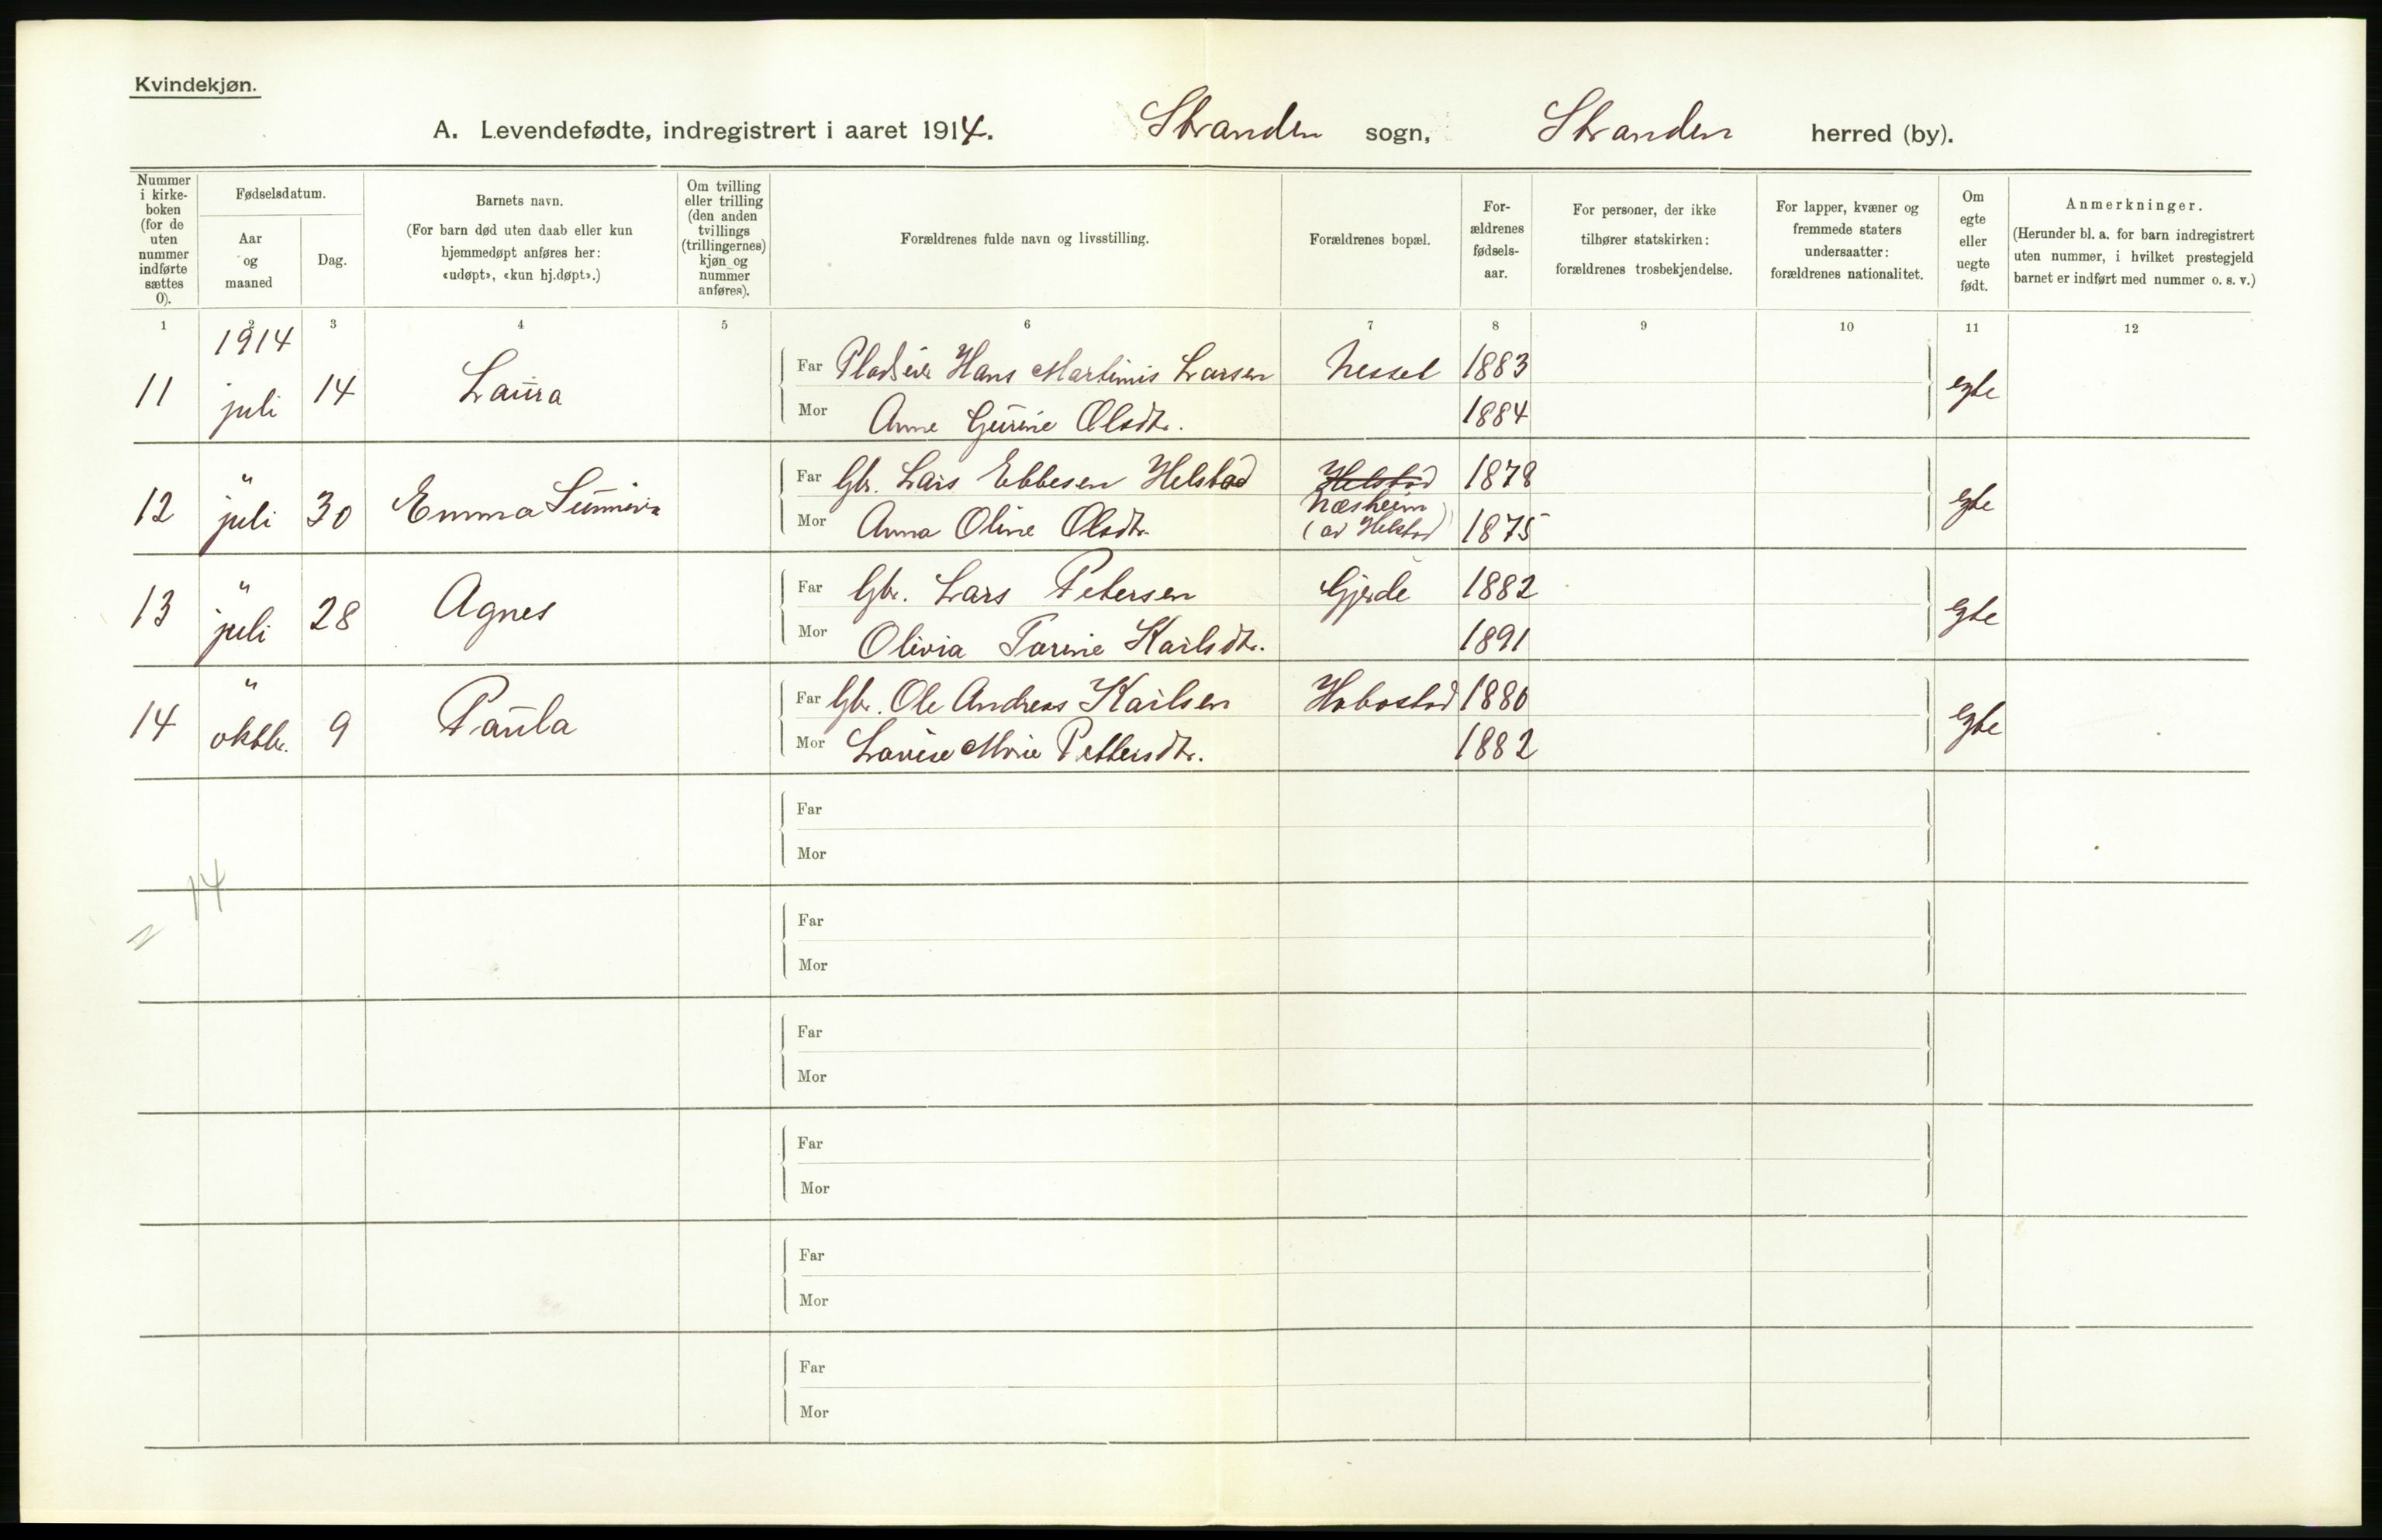 Kvindekjøn.
A. Levendefødte, indregistrert i aaret 1914. Stranden sogn, Stranden herred (by).
Nummer
i kirke-
boken
(for de
uten
nummer
indførte
sættes
0).
Fødselsdatum.
Aar
og
maaned
Dag.
Barnets navn.
(For barn død uten daab eller kun
hjemmedøpt anføres her:
«udøpt», «kun hj.døpt».)
Om tvilling
eller trilling
(den anden
tvillings
(trillingernes)
kjøn og
nummer
anføres).
Forældrenes fulde navn og livsstilling.
Forældrenes bopæl.
For-
ældrenes
fødsels-
aar.
For personer, der ikke
tilhører statskirken:
forældrenes trosbekjendelse.
For lapper, kvæner og
fremmede staters
undersaatter:
forældrenes nationalitet.
Om
egte
eller
uegte
født.
Anmerkninger.
(Herunder bl. a. for barn indregistrert
uten nummer, i hvilket prestegjeld
barnet er indført med nummer o. s. v.)
1 2 3 4 5 6 7 8 9 10 11 12
1914
11 juli 14 Laura Far Pladseier Hans Martinus Larsen Nesset 1883 egte
Mor Anne Gurine Olsdtr. 1884
12 " juli 30 Emma Sunniva Far Gbr. Lars Ebbesen Helstad Helstad 1878 egte
Næsheim
Mor Anna Oline Olsdtr. (av Helstad) 1875
13 " juli 28 Agnes Far Gbr. Lars Petersen Gjerde 1882 egte
Mor Olivia Torine Karlsdtr. 1891
14 " oktbr. 9 Paula Far Gbr. Ole Andreas Karlsen Habostad 1880 egte
Mor Lovise Marie Pettersdtr. 1882
Far
Mor
14
Far
Mor
Far
Mor
Far
Mor
Far
Mor
Far
Mor